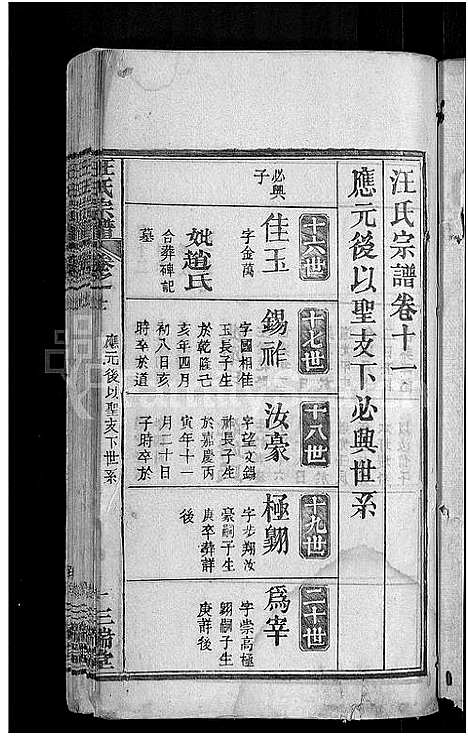 汪氏宗譜卷十一
應元後以聖支下必興世系
十六世
必興
子
佳玉
字金萬
妣趙氏
合葬碑記
墓
十七世
錫祚
字國相佳
玉長子生
於乾隆己
亥年四月
初八日亥
時卒於道
十八世
汝豪
字望文錫
祚長子生
於嘉慶丙
寅年十一
月二十日
子時卒於
十九世
極翺
字步翔汝
豪嗣子生
庚卒葬詳
後
二十世
為宰
字崇高極
翺嗣子生
庚詳後
汪氏宗譜
應元後以聖支下世系